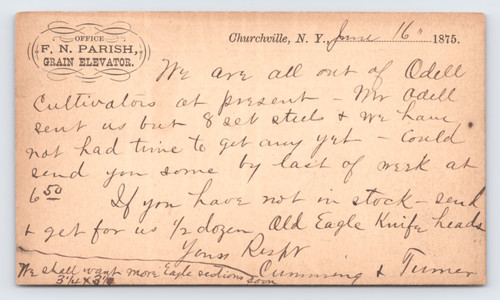 OFFICE
F. N. PARISH,
GRAIN ELEVATOR.
Churchville, N. Y., June 16" 1875.
We are all out of Odell
Cultivators at present - Mr Odell
sent us but 8 set steels & We have
not had time to get any yet - Could
send you some by last of week at
6 50 If you have not in stock - send
& get for us 1/2 dozen Old Eagle Knife heads
Yours Respt
We shall want more Eagle sections soon
3 1/4 x 3 1/2
Cumming & Turner